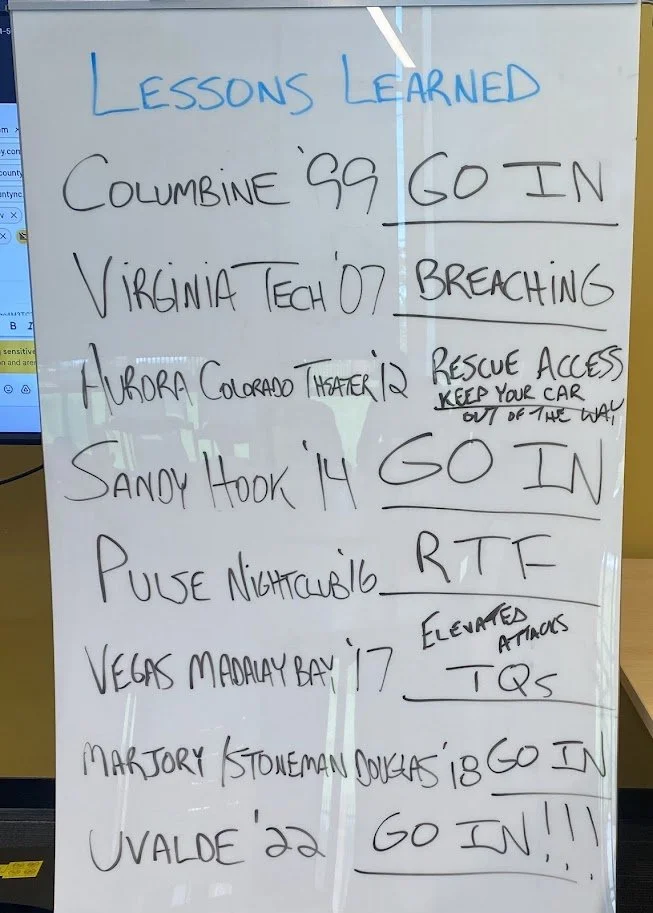 LESSONS LEARNED
COLUMBINE '99 GO IN
VIRGINIA TECH '07 BREACHING
AURORA COLORADO THEATER '12 RESCUE ACCESS
KEEP YOUR CAR
OUT OF THE WAY
SANDY HOOK '14 GO IN
PULSE NIGHTCLUB '16 RTF
ELEVATED
ATTACKS
VEGAS MADALAY BAY '17 TQS
MARJORY / STONEMAN DOUGLAS '18 GO IN
UVALDE '22 GO IN!!!
B I
sensitive